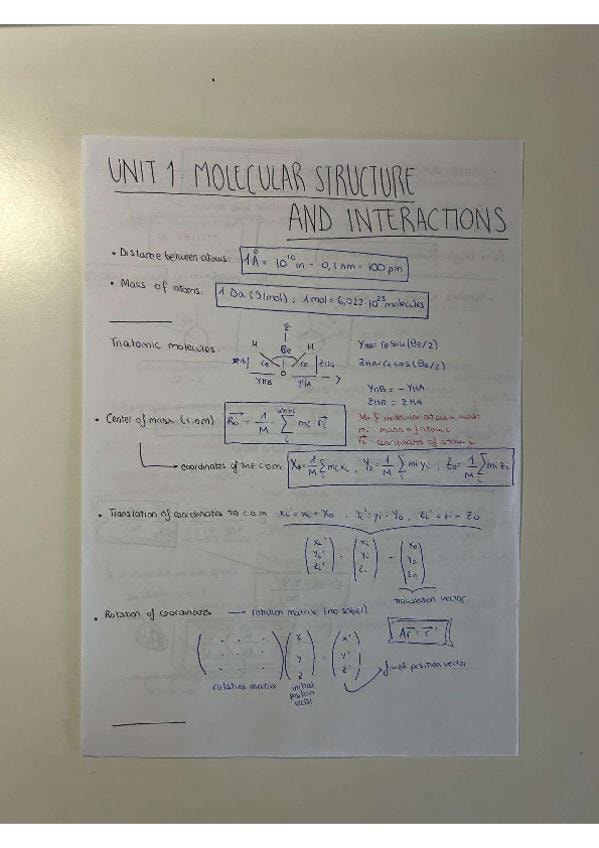 UNIT 1: MOLECULAR STRUCTURE
AND INTERACTIONS
• Distance between atoms: 1 Å = 10^-10 m = 0,1 nm = 100 pm
• Mass of atoms: 1 Da (g/mol), 1 mol = 6,022·10^23 molecules
Triatomic molecules:
z
H θe H
re re zHA
O y
yHB yHA
yHA = re sin(θe/2)
zHA = re cos(θe/2)
yHB = -yHA
zHB = zHA
• Center of mass (c.o.m) R₀ = 1/M · Σ mi · ri
atoms
i
mi: mass of atom i
ri: coordinates of atom i
coordinates of the c.o.m X₀ = 1/M Σ mi xi, Y₀ = 1/M Σ mi yi, Z₀ = 1/M Σ mi zi
• Translation of coordinates to c.o.m xi' = xi - X₀, yi' = yi - Y₀, zi' = zi - Z₀
(xi' yi' zi') = (xi yi zi) - (X₀ Y₀ Z₀)
translation vector
• Rotation of coordinates → rotation matrix (no saber)
A r = r'
( . . . ) (x y z) = (x' y' z')
final position vector
rotation matrix initial position vector